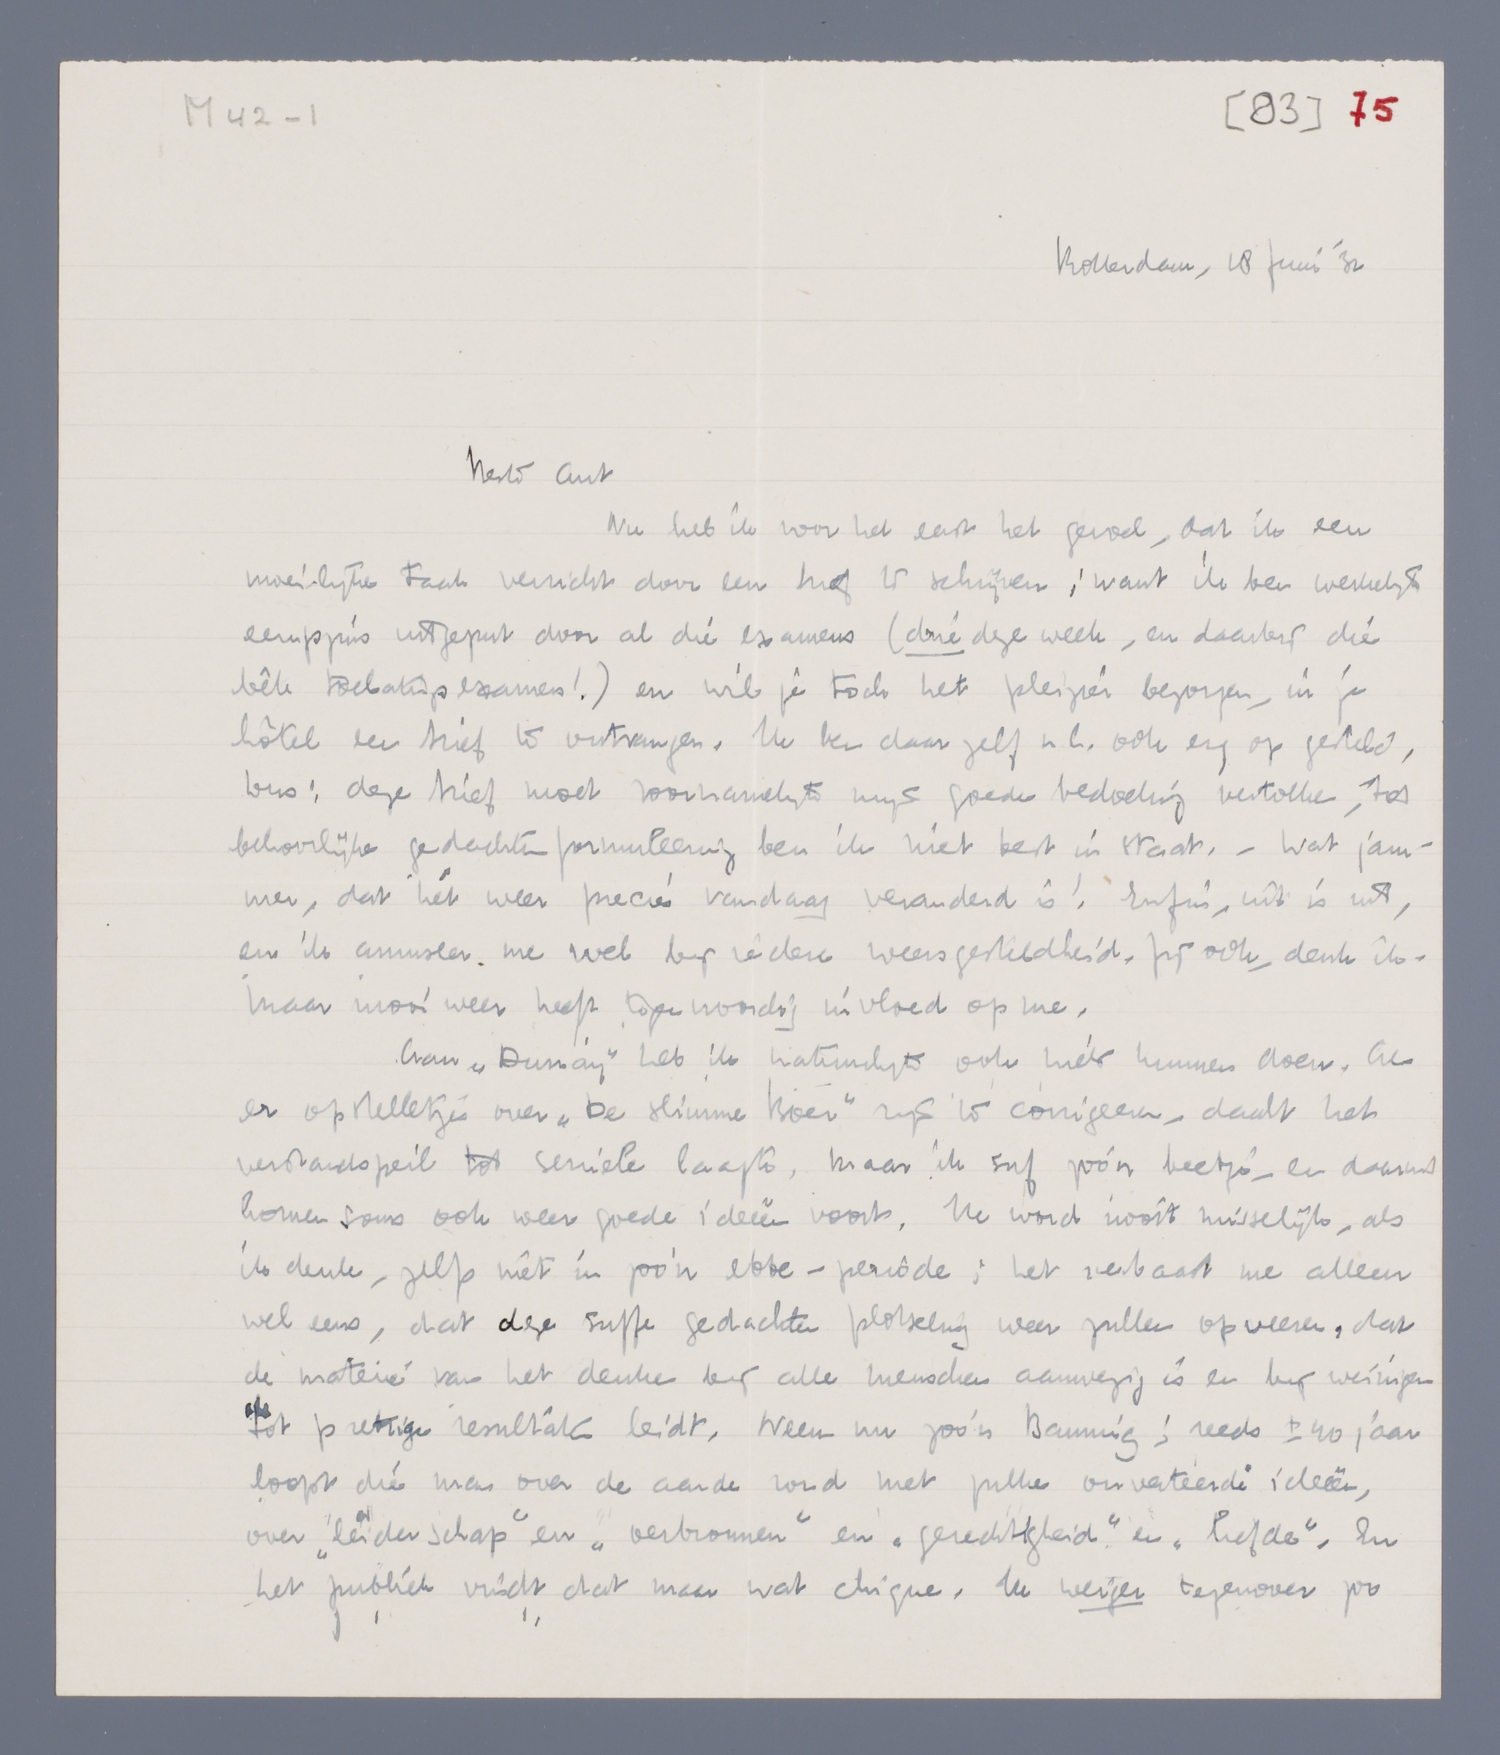 M 42-1
[83] 75
Rotterdam, 18 Juni '32
Beste Ant
Nu heb ik voor het eerst het gevoel, dat ik een
moeilijke taak verricht door een brief te schrijven; want ik ben werkelijk
eenigszins uitgeput door al die examens (drie deze week, en daarbij die
bête toelatingsexamens!) en wil je toch het pleizier bezorgen, in je
hôtel een brief te ontvangen. Ik ben daar zelf n.l. ook erg op gesteld,
dus: deze brief moet voornamelijk mijn goede bedoeling vertolken, tot
behoorlijke gedachtenformuleering ben ik niet best in staat. - Wat jam-
mer, dat het weer precies vandaag veranderd is! Enfin, uit is uit,
en ik amuseer me wel bij iedere weersgesteldheid. Jij ook, denk ik.
Maar mooi weer heeft tegenwoordig invloed op me.
Aan „Dumay" heb ik natuurlijk ook niets kunnen doen. Als
er opstelletjes over „De slimme Boer" zijn te corrigeeren, daalt het
verstandspeil tot seniele laagte. Maar ik suf zoo'n beetje, en daaruit
komen soms ook weer goede ideeën voort. Ik word nooit misselijk, als
ik denk, zelfs niet in zoo'n ebbe-periode; het verbaast me alleen
wel eens, dat deze suffe gedachten plotseling weer zullen opveeren, dat
de materie van het denken bij alle menschen aanwezig is en bij weinigen
tot prettige resultaten leidt. Neem nu zoo'n Banning; reeds ± 40 jaar
loopt die man over de aarde rond met zulke onverteerde ideeën,
over „leiderschap" en „verbronnen" en „gerechtigheid" en „liefde". En
het publiek vindt dat maar wat chique. Ik weiger tegenover zoo